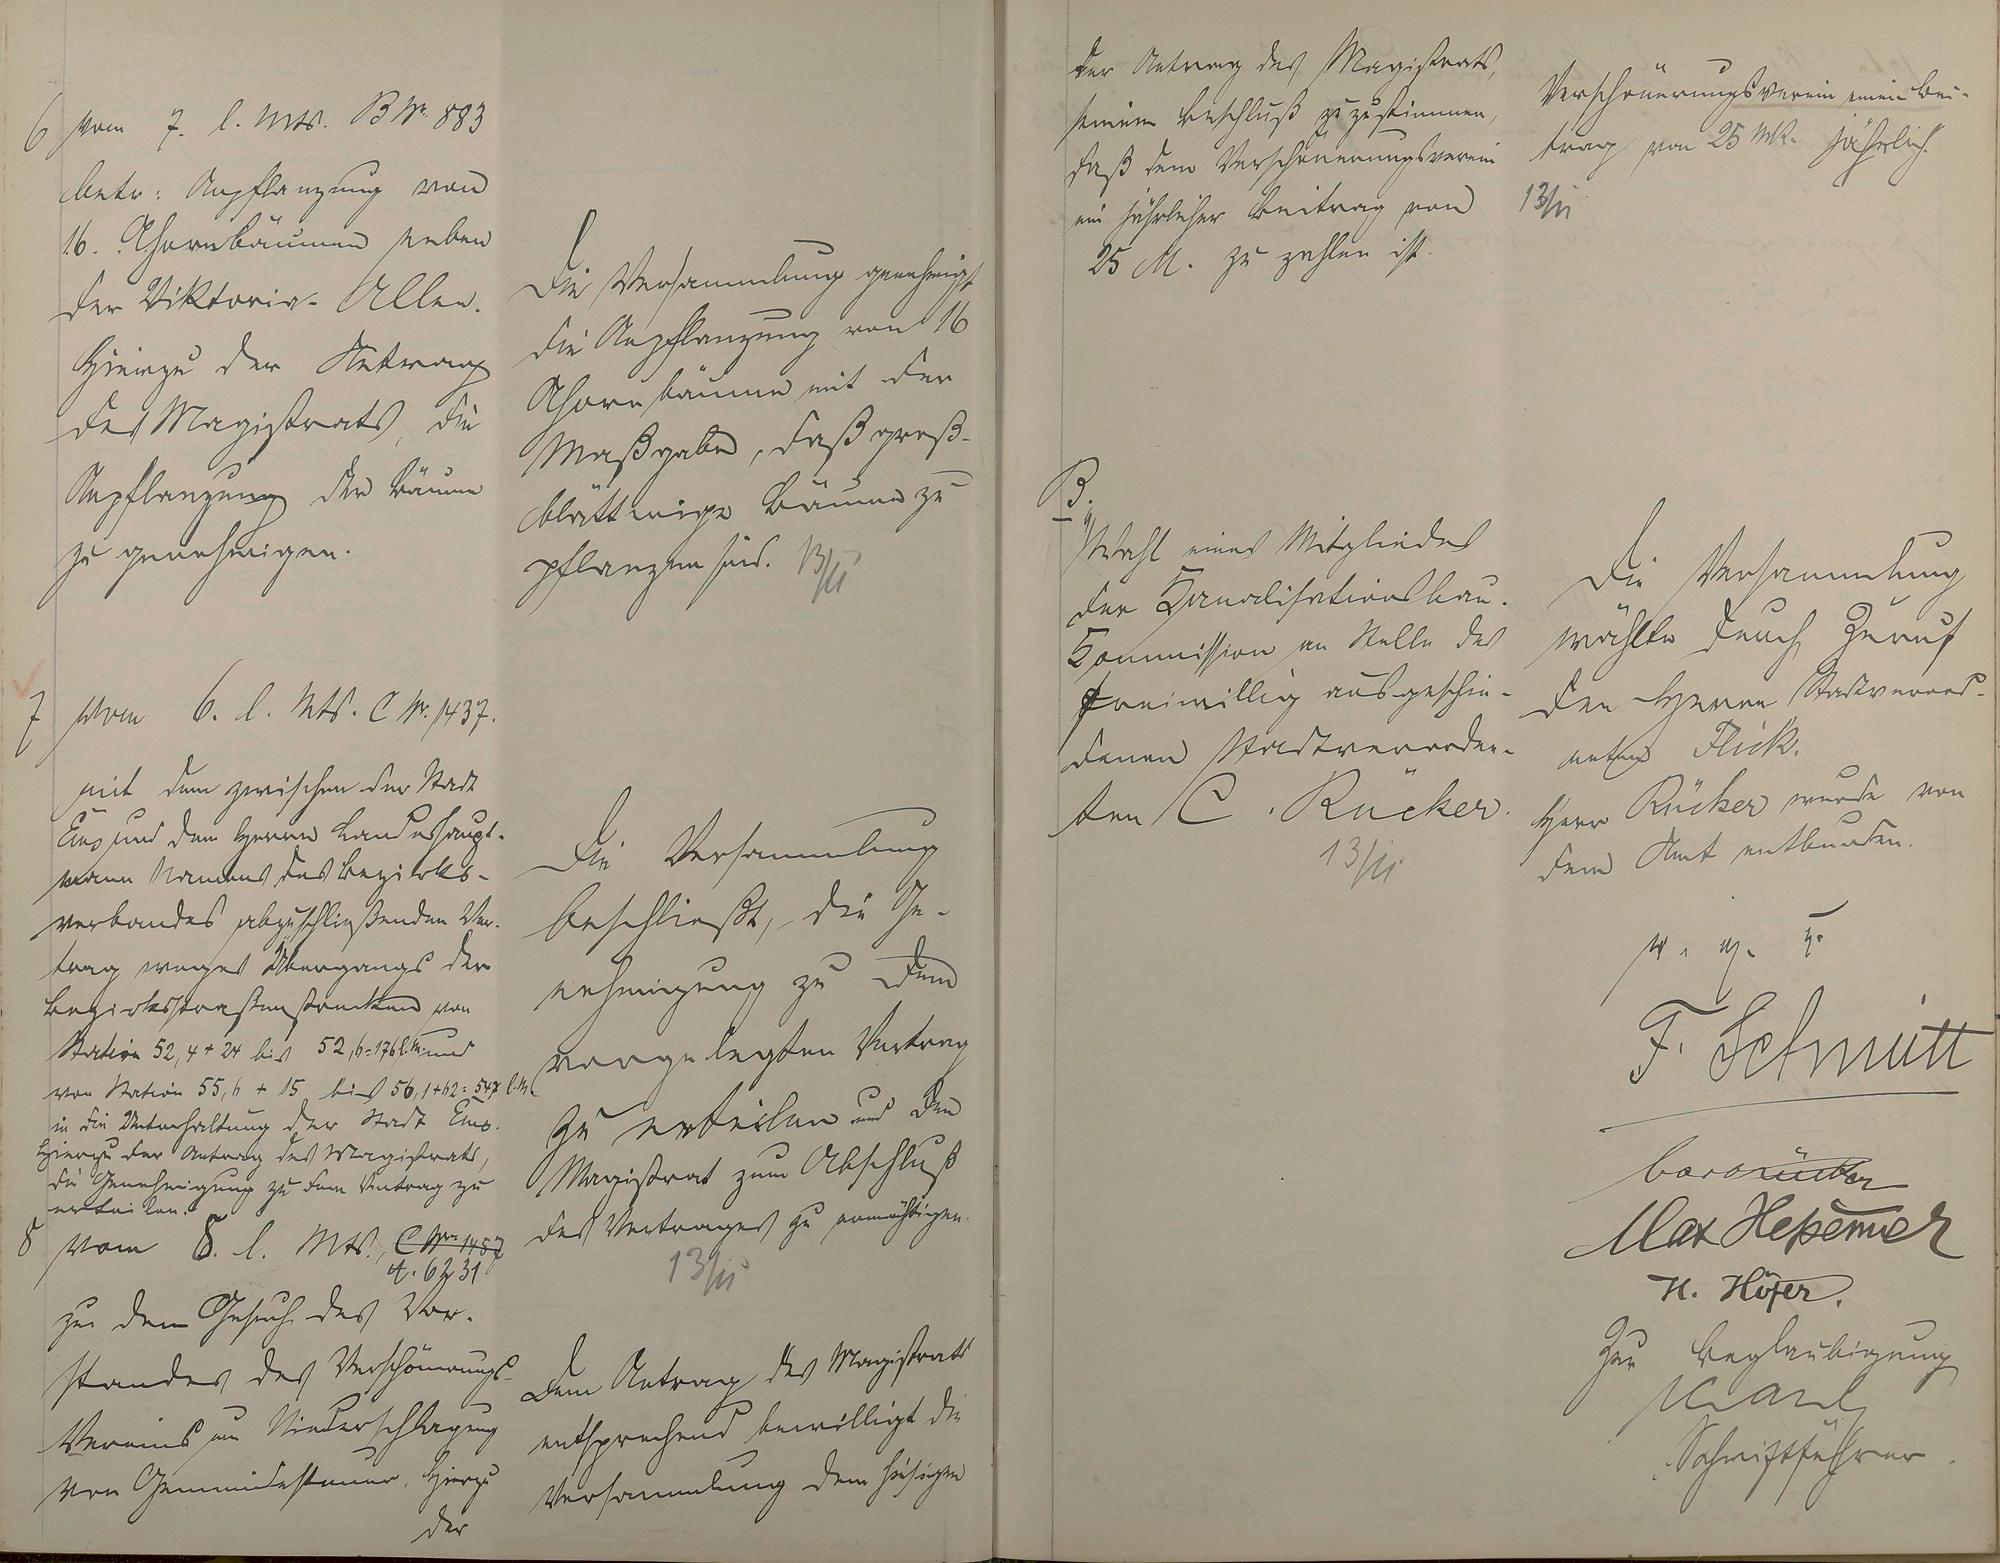 6 vom 7. l. Mts. B Nr. 883
betr: Anpflanzung von
16. Ahornbäumen neben
der Viktoria-Allee.
Hierzu der Antrag
des Magistrats, die
Anpflanzung der Bäume
zu genehmigen.
Die Versammlung genehmigt
die Anpflanzung von 16
Ahornbäume mit der
Maßgabe, daß groß-
blättrige Bäume zu
pflanzen sind. 13/11
7 vom 6. l. Mts. C Nr. 1437.
mit dem zwischen der Stadt
Ems und dem Herrn Landeshaupt-
mann Namens des Bezirks-
verbandes abzuschließenden Ver-
trag wegen Übergangs der
Bezirksstraßenstrecken von
Station 52,4 + 24 bis 52,6 = 176 l.M. und
von Station 55,6 + 15 bis 56,1+62 = 547 l.M.
in die Unterhaltung der Stadt Ems.
Hierzu der Antrag des Magistrats,
die Genehmigung zu dem Vertrag zu
erteilen.
Die Versammlung
beschließt, die Ge-
nehmigung zu dem
vorgelegten Vertrag
zu erteilen und den
Magistrat zum Abschluß
des Vertrages zu ermächtigen.
13/11
8 vom 8. l. Mts., C Nr. 1457
A. 6231
zu dem Gesuch des Vor-
standes des Verschönerungs-
Vereins um Niederschlagung
von Gemeindesteuer. Hierzu
der
Dem Antrag des Magistrats
entsprechend bewilligt die
Versammlung dem hiesigen
der Antrag des Magistrats,
seinem Beschluß zuzustimmen,
daß dem Verschönerungsverein
ein jährlicher Beitrag von
25 M. zu zahlen ist.
Verschönerungsverein einen Bei-
trag von 25 Mk. jährlich.
13/11
B.
Wahl eines Mitgliedes
der Kanalisationsbau-
Kommission an Stelle des
freiwillig ausgeschie-
denen Stadtverordne-
ten C. Rücker.
13/11
Die Versammlung
wählte durch Zuruf
den Herrn Stadtverord-
neten Flick.
Herr Rücker wurde von
dem Amt entbunden.
v. g. u.
F. Schmitt
H. Höfer.
Zur Beglaubigung
Schriftführer.